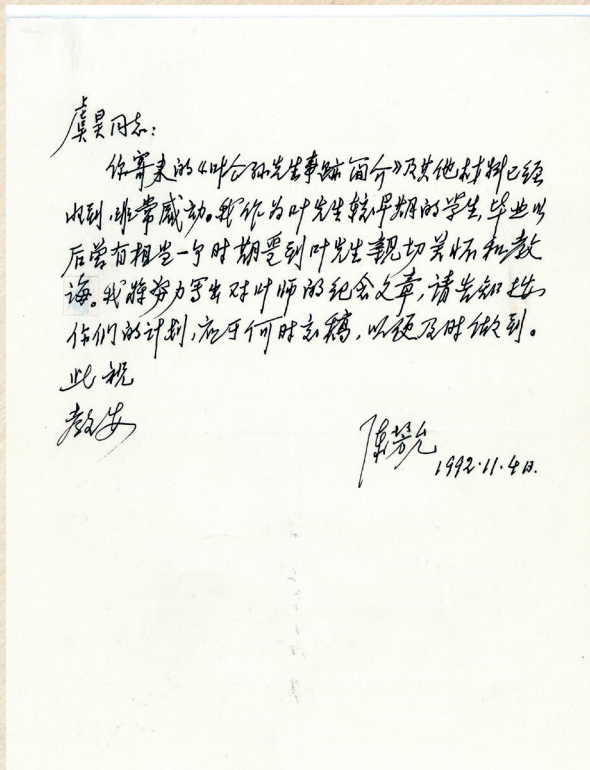 虞昊同志：
你寄来的《叶企孙先生事迹简介》及其他材料已经
收到，非常感动。我作为叶先生较早期的学生，毕业以
后曾有相当一个时期受到叶先生亲切关怀和教
诲。我将努力写出对叶师的纪念文章，请告知按
你们的计划，应于何时交稿，以便及时做到。
此祝
教安
陈芳允
1992.11.4日.